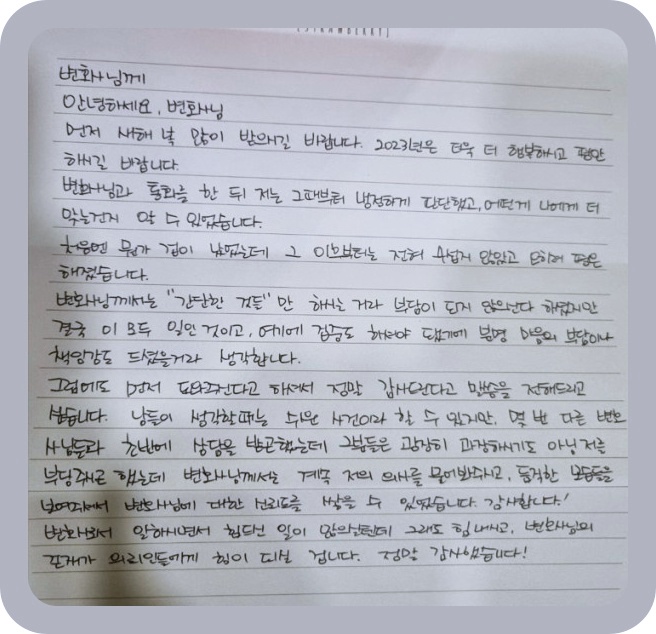 [STRAWBERRY]
변호사님께
안녕하세요, 변호사님
먼저 새해 복 많이 받으시길 바랍니다. 2023년은 더욱 더 행복하시고 평안
하시길 바랍니다.
변호사님과 통화를 한 뒤 저는 그때부터 냉정하게 판단했고, 어떤게 나에게 더
맞는건지 알 수 있었습니다.
처음엔 뭔가 겁이 났었는데 그 이후부터는 전혀 무섭지 않았고 오히려 평온
해졌습니다.
변호사님께서는 "간단한 것들"만 하시는 거라 부담이 되지 않으신다 하셨지만
결국 이 모두 일인 것이고, 여기에 검증도 하셔야 했기에 분명 마음의 부담이나
책임감도 드셨을거라 생각합니다.
그럼에도 먼저 도와주신다고 하셔서 정말 감사드린다고 말씀을 전해드리고
싶습니다. 남들이 생각할때는 쉬운 사건이라 할 수 있지만, 몇 번 다른 변호
사님들과 초반에 상담을 받곤했는데 그분들은 굉장히 과장하시기도 아님 저를
부담주시곤 했는데 변호사님께서는 계속 저의 의사를 물어봐주시고, 동작한 모습들을
보여주셔서 변호사님에 대한 신뢰도를 쌓을 수 있었습니다. 감사합니다!
변호사로서 일하시면서 힘드신 일이 많으실텐데 그래도 힘내시고, 변호사님의
존재가 의뢰인들에게 힘이 되실 겁니다. 정말 감사했습니다!